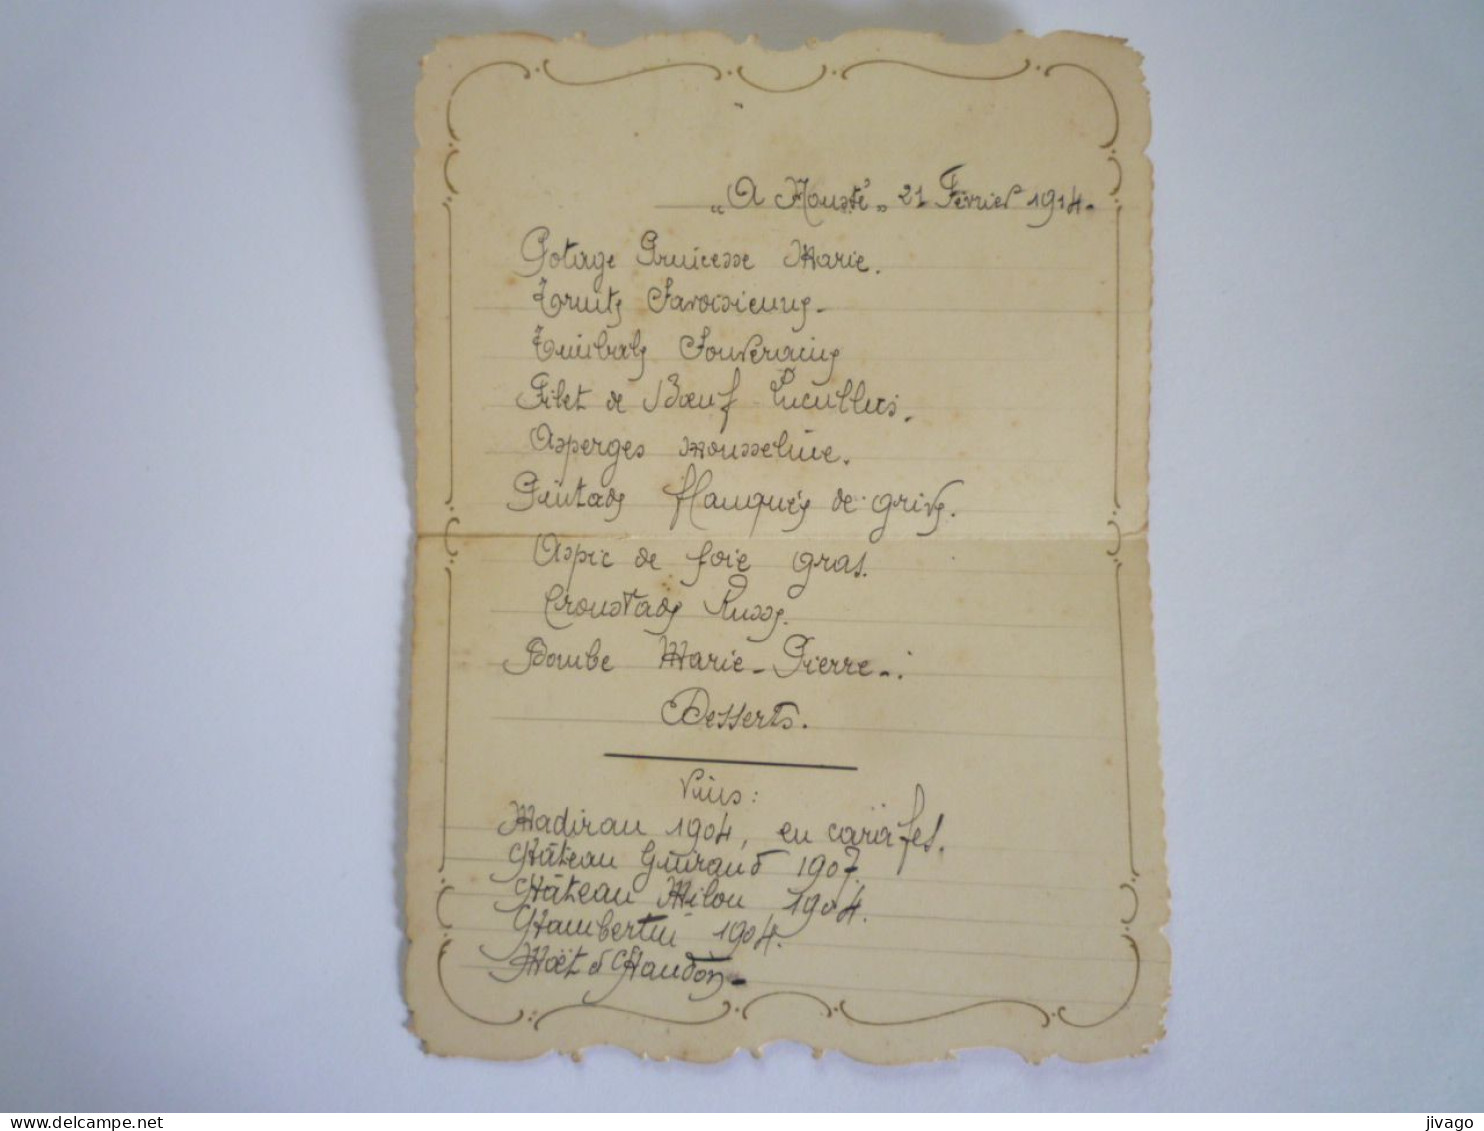 „A Mousté" 21 Février 1914.
Potage Princesse Marie.
Truites Savoisiennes.
Timbales Souveraines
Filet de Bœuf Lucullus.
Asperges mousseline.
Pintades flanquées de grives.
Aspic de foie gras.
Croustades Russes.
Bombe Marie-Pierre.
Desserts.
Vins:
Madiran 1904, en carafes.
Château Guiraud 1907.
Château Milon 1904.
Chambertin 1904.
Moët & Chandon.
delcampe.net
jivago